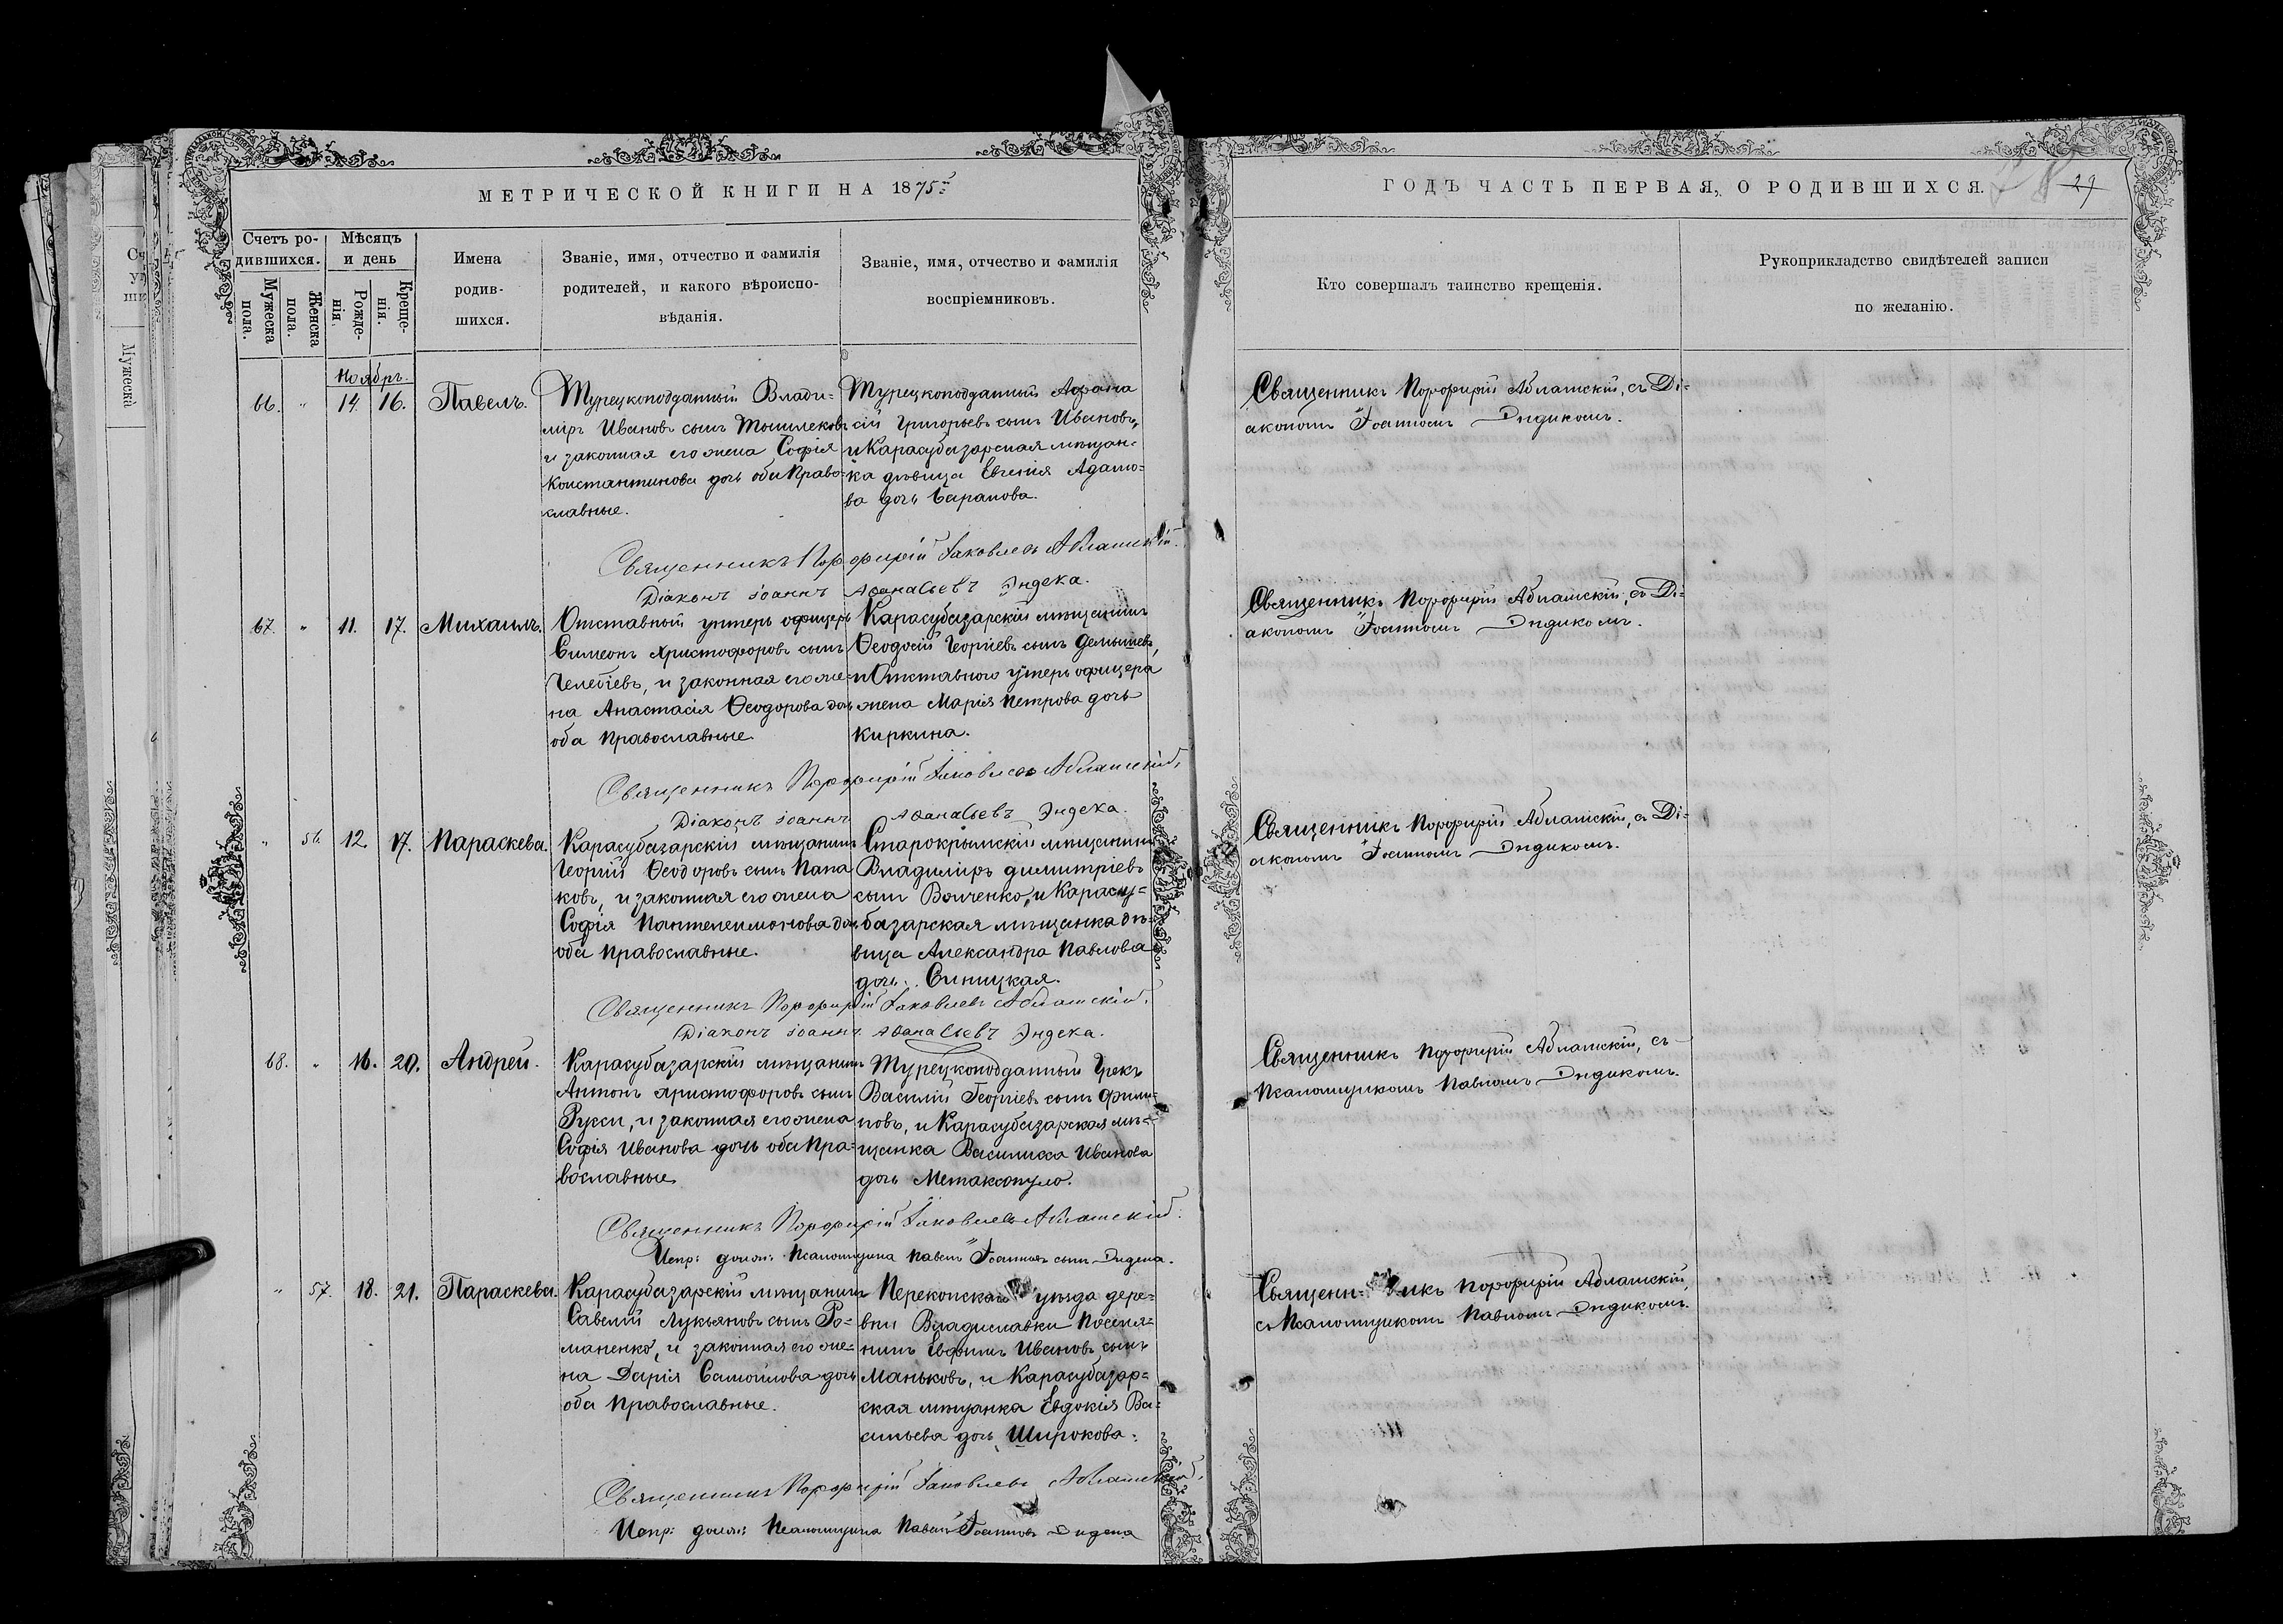 МЕТРИЧЕСКОЙ КНИГИ НА 1875й
ГОДЪ ЧАСТЬ ПЕРВАЯ, О РОДИВШИХСЯ.
29
Счетъ ро-
дившихся.
Мужеска пола.
Женска пола.
Мѣсяцъ
и день
Рожде-
нія.
Креще-
нія.
Имена
родив-
шихся.
Званіе, имя, отчество и фамилія
родителей, и какого вѣроиспо-
вѣданія.
Званіе, имя, отчество и фамилія
воспріемниковъ.
Кто совершалъ таинство крещенія.
Рукоприкладство свидѣтелей записи
по желанію.
Ноябрь.
66. " 14. 16. Павелъ.
Турецкоподданный Влади-
міръ Ивановъ сынъ
и законная его жена Софія
Константинова дочь оба Право-
славные.
Турецкоподданный Афана
сій Григорьевъ сынъ Ивановъ,
и Карасубазарская мѣщан-
ка дѣвица Евгенія Адамо-
ва дочь Баранова.
Священникъ Порфирій Аблашскій, съ Ді-
акономъ Іоанномъ Эндикомъ.
Священникъ Порфирій Іаковлевъ Аблашскій.
Діаконъ Іоаннъ Аѳанасьевъ Эндека.
67. " 11. 17. Михаилъ.
Отставный унтеръ офицеръ
Симеонъ Христофоровъ сынъ
Челебіевъ, и законная его же-
на Анастасія Ѳеодорова дочь
оба Православные.
Карасубазарскій мѣщанинъ
Ѳеодосій Георгіевъ сынъ Демышевъ,
и Отставного унтеръ офицера
жена Марія Петрова дочь
Киркина.
Священникъ Порфирій Аблашскій, съ Ді-
акономъ Іоанномъ Эндикомъ.
Священникъ Порфирій Іаковлевъ Аблашскій,
Діаконъ Іоаннъ Аѳанасьевъ Эндека.
" 56. 12. 17. Параскева.
Карасубазарскій мѣщанинъ
Георгій Ѳеодоровъ сынъ Папа
ковъ, и законная его жена
Софія Пантелеимонова дочь
оба Православные.
Старокрымскій мѣщанинъ
Владиміръ Димитріевъ
сынъ Войченко, и Карасу-
базарская мѣщанка дѣ-
вица Александра Павлова
дочь Синицкая.
Священникъ Порфирій Аблашскій, съ Ді-
акономъ Іоанномъ Эндикомъ.
Священникъ Порфирій Іаковлевъ Аблашскій.
Діаконъ Іоаннъ Аѳанасьевъ Эндека.
68. " 16. 20. Андрей.
Карасубазарскій мѣщанинъ
Антонъ Христофоровъ сынъ
Русси, и законная его жена
Софія Иванова дочь оба Пра-
вославные.
Турецкоподданный Грекъ
Василій Георгіевъ сынъ Фили-
повъ, и Карасубазарская мѣ-
щанка Василиса Иванова
дочь Метаксопуло.
Священникъ Порфирій Аблашскій, съ
Псаломщикомъ Павломъ Эндикомъ.
Священникъ Порфирій Іаковлевъ Аблашскій.
Испр: долж: Псаломщика Павелъ Іоанновъ сынъ Эндека.
" 57. 18. 21. Параскева.
Карасубазарскій мѣщанинъ
Савелій Лукьяновъ сынъ Ро-
маненко, и законная его же-
на Дарія Самойлова дочь
оба Православные.
Перекопскаго уѣзда дере-
вни Владиславки Поселя-
нинъ Ефимъ Ивановъ сынъ
Маньковъ, и Карасубазар-
ская мѣщанка Евдокія Ва-
сильева дочь Широкова.
Священникъ Порфирій Аблашскій,
съ Псаломщикомъ Павломъ Эндикомъ.
Священникъ Порфирій Іаковлевъ Аблашскій,
Испр: долж: Псаломщика Павелъ Іоанновъ Эндека